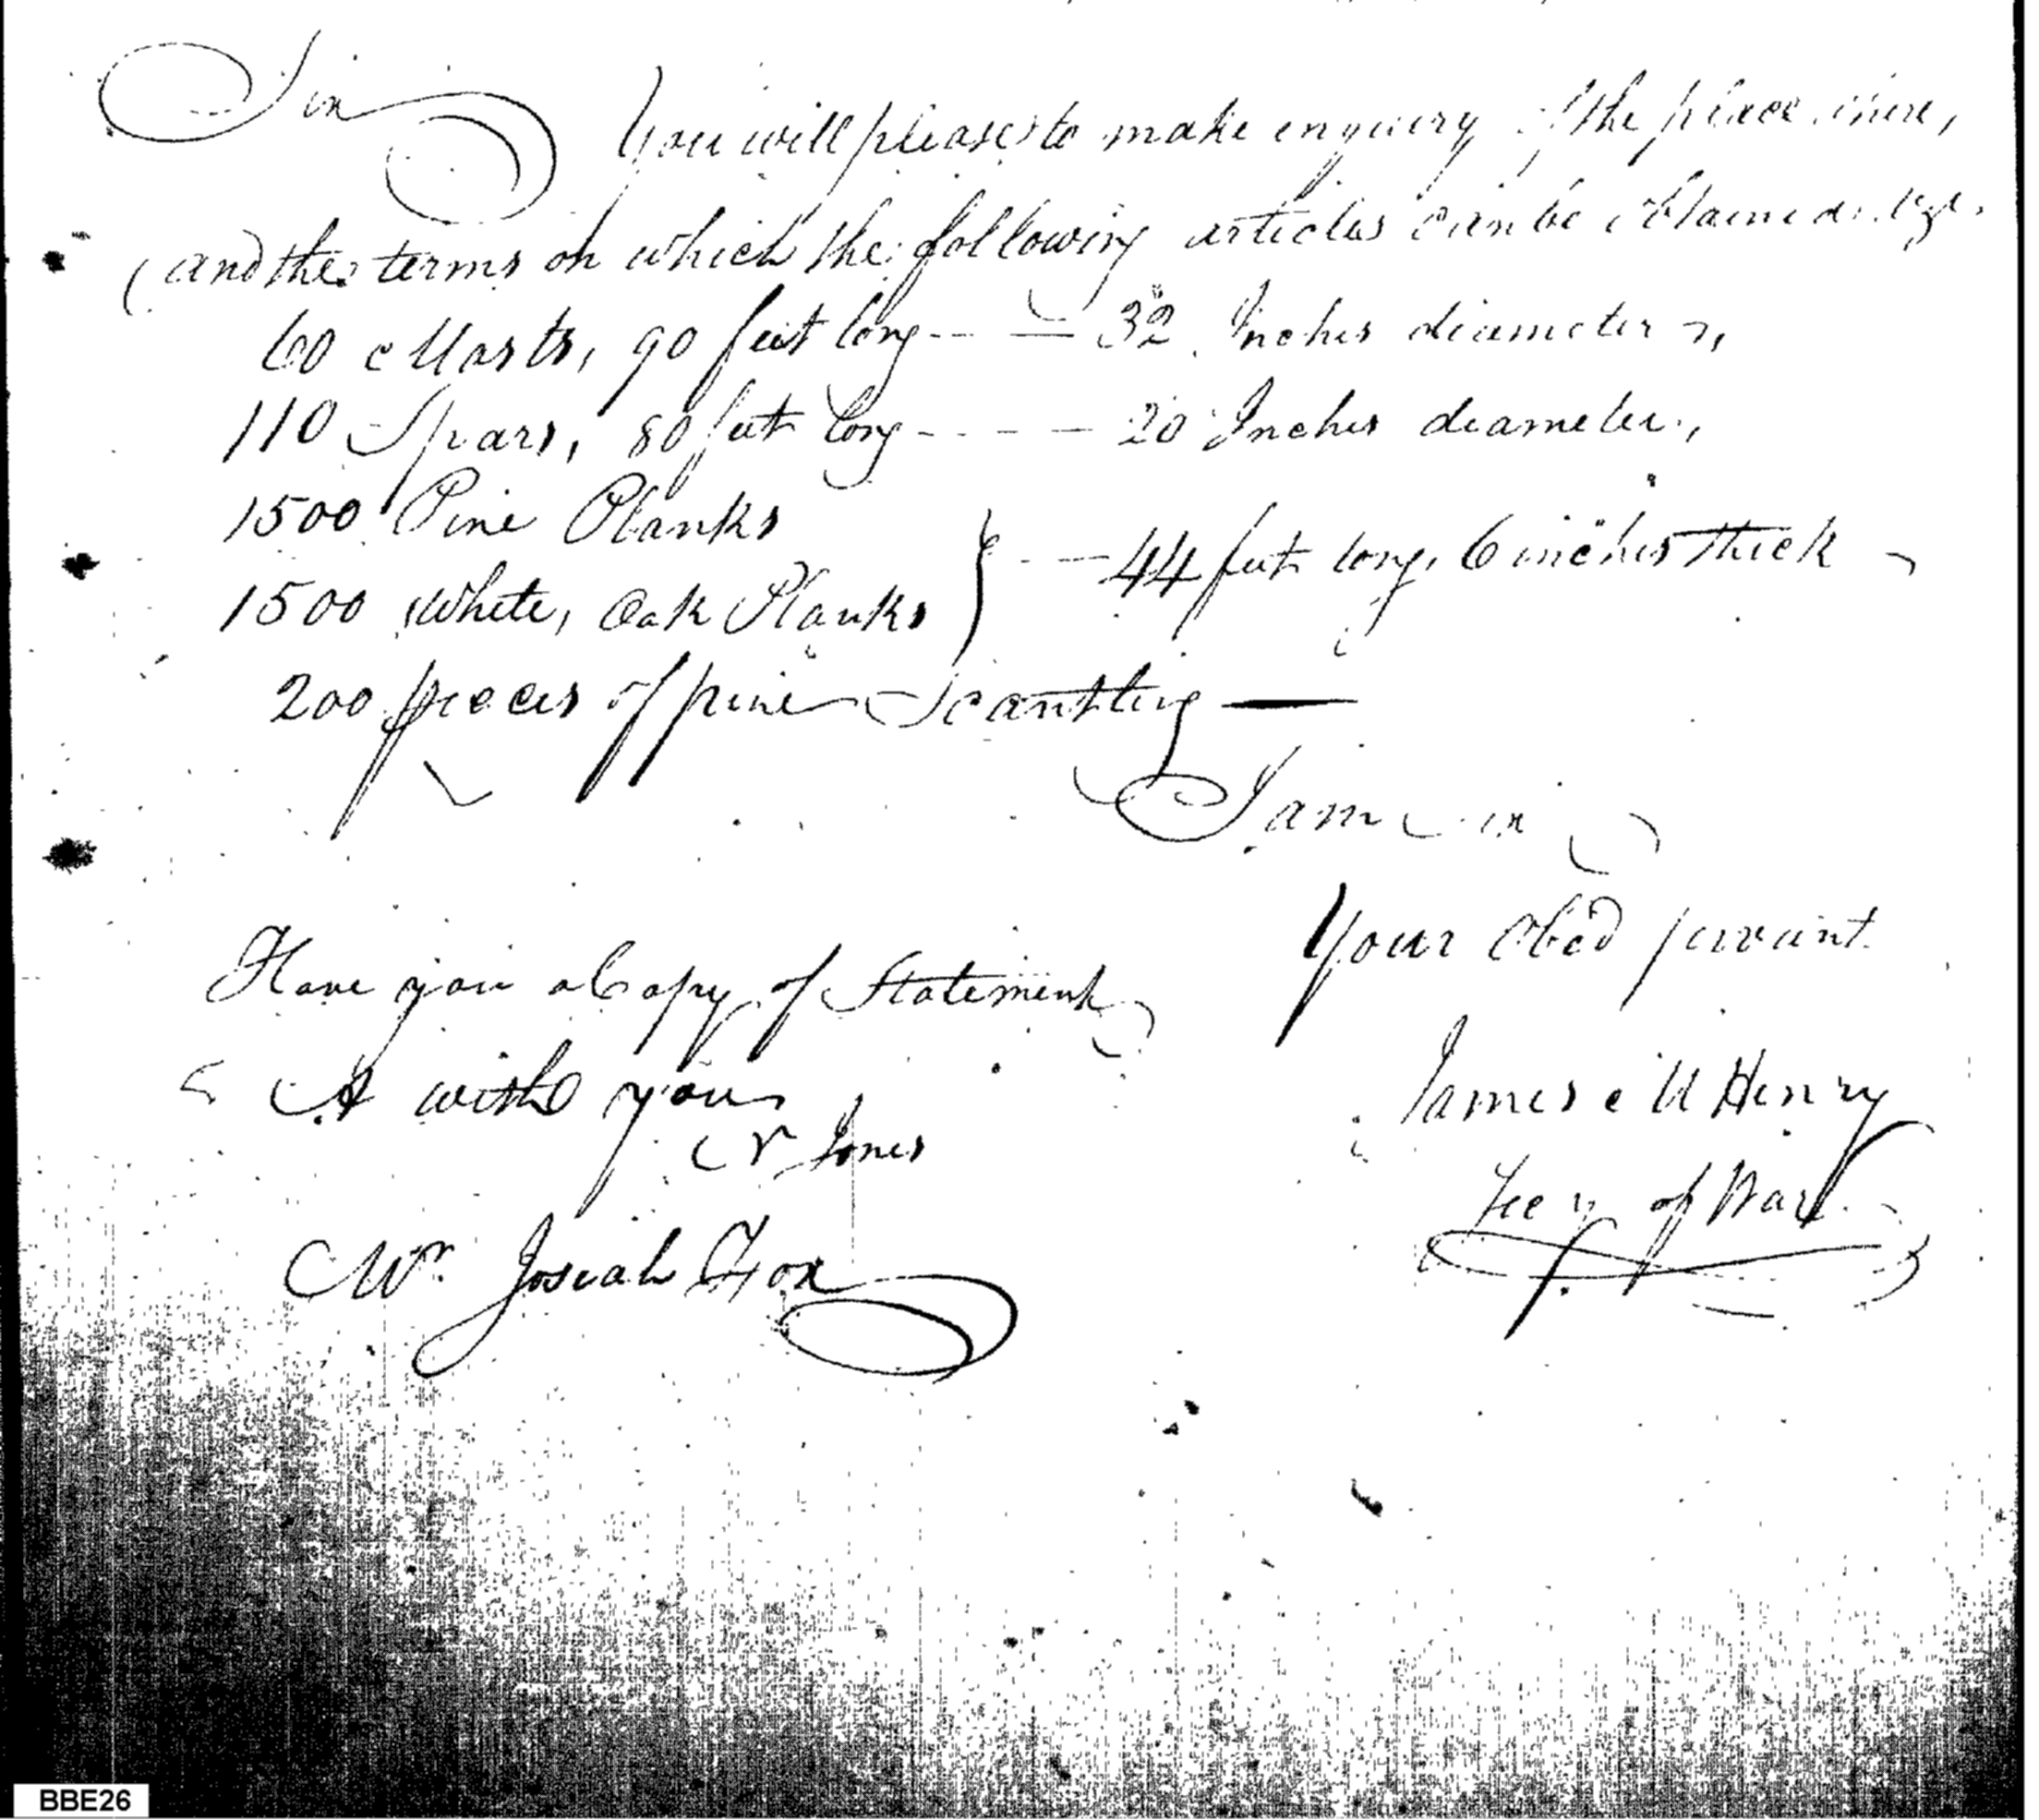 Sir
You will please to make enquiry of the place where,
and the terms on which the following articles can be obtained. Viz.
60 Masts, 90 feet long -- — 32 Inches diameter
110 Spars, 80 feet long - - - - 20 Inches diameter,
1500 Pine Planks
1500 White, Oak Planks } - — 44 feet long, 6 inches thick
200 pieces of pine Scantling —
I am Sir
Your Obed servant
Have you a Copy of Statement
A with you
Jones
James McHenry
Secy of War
Mr Josiah Fox
BBE26